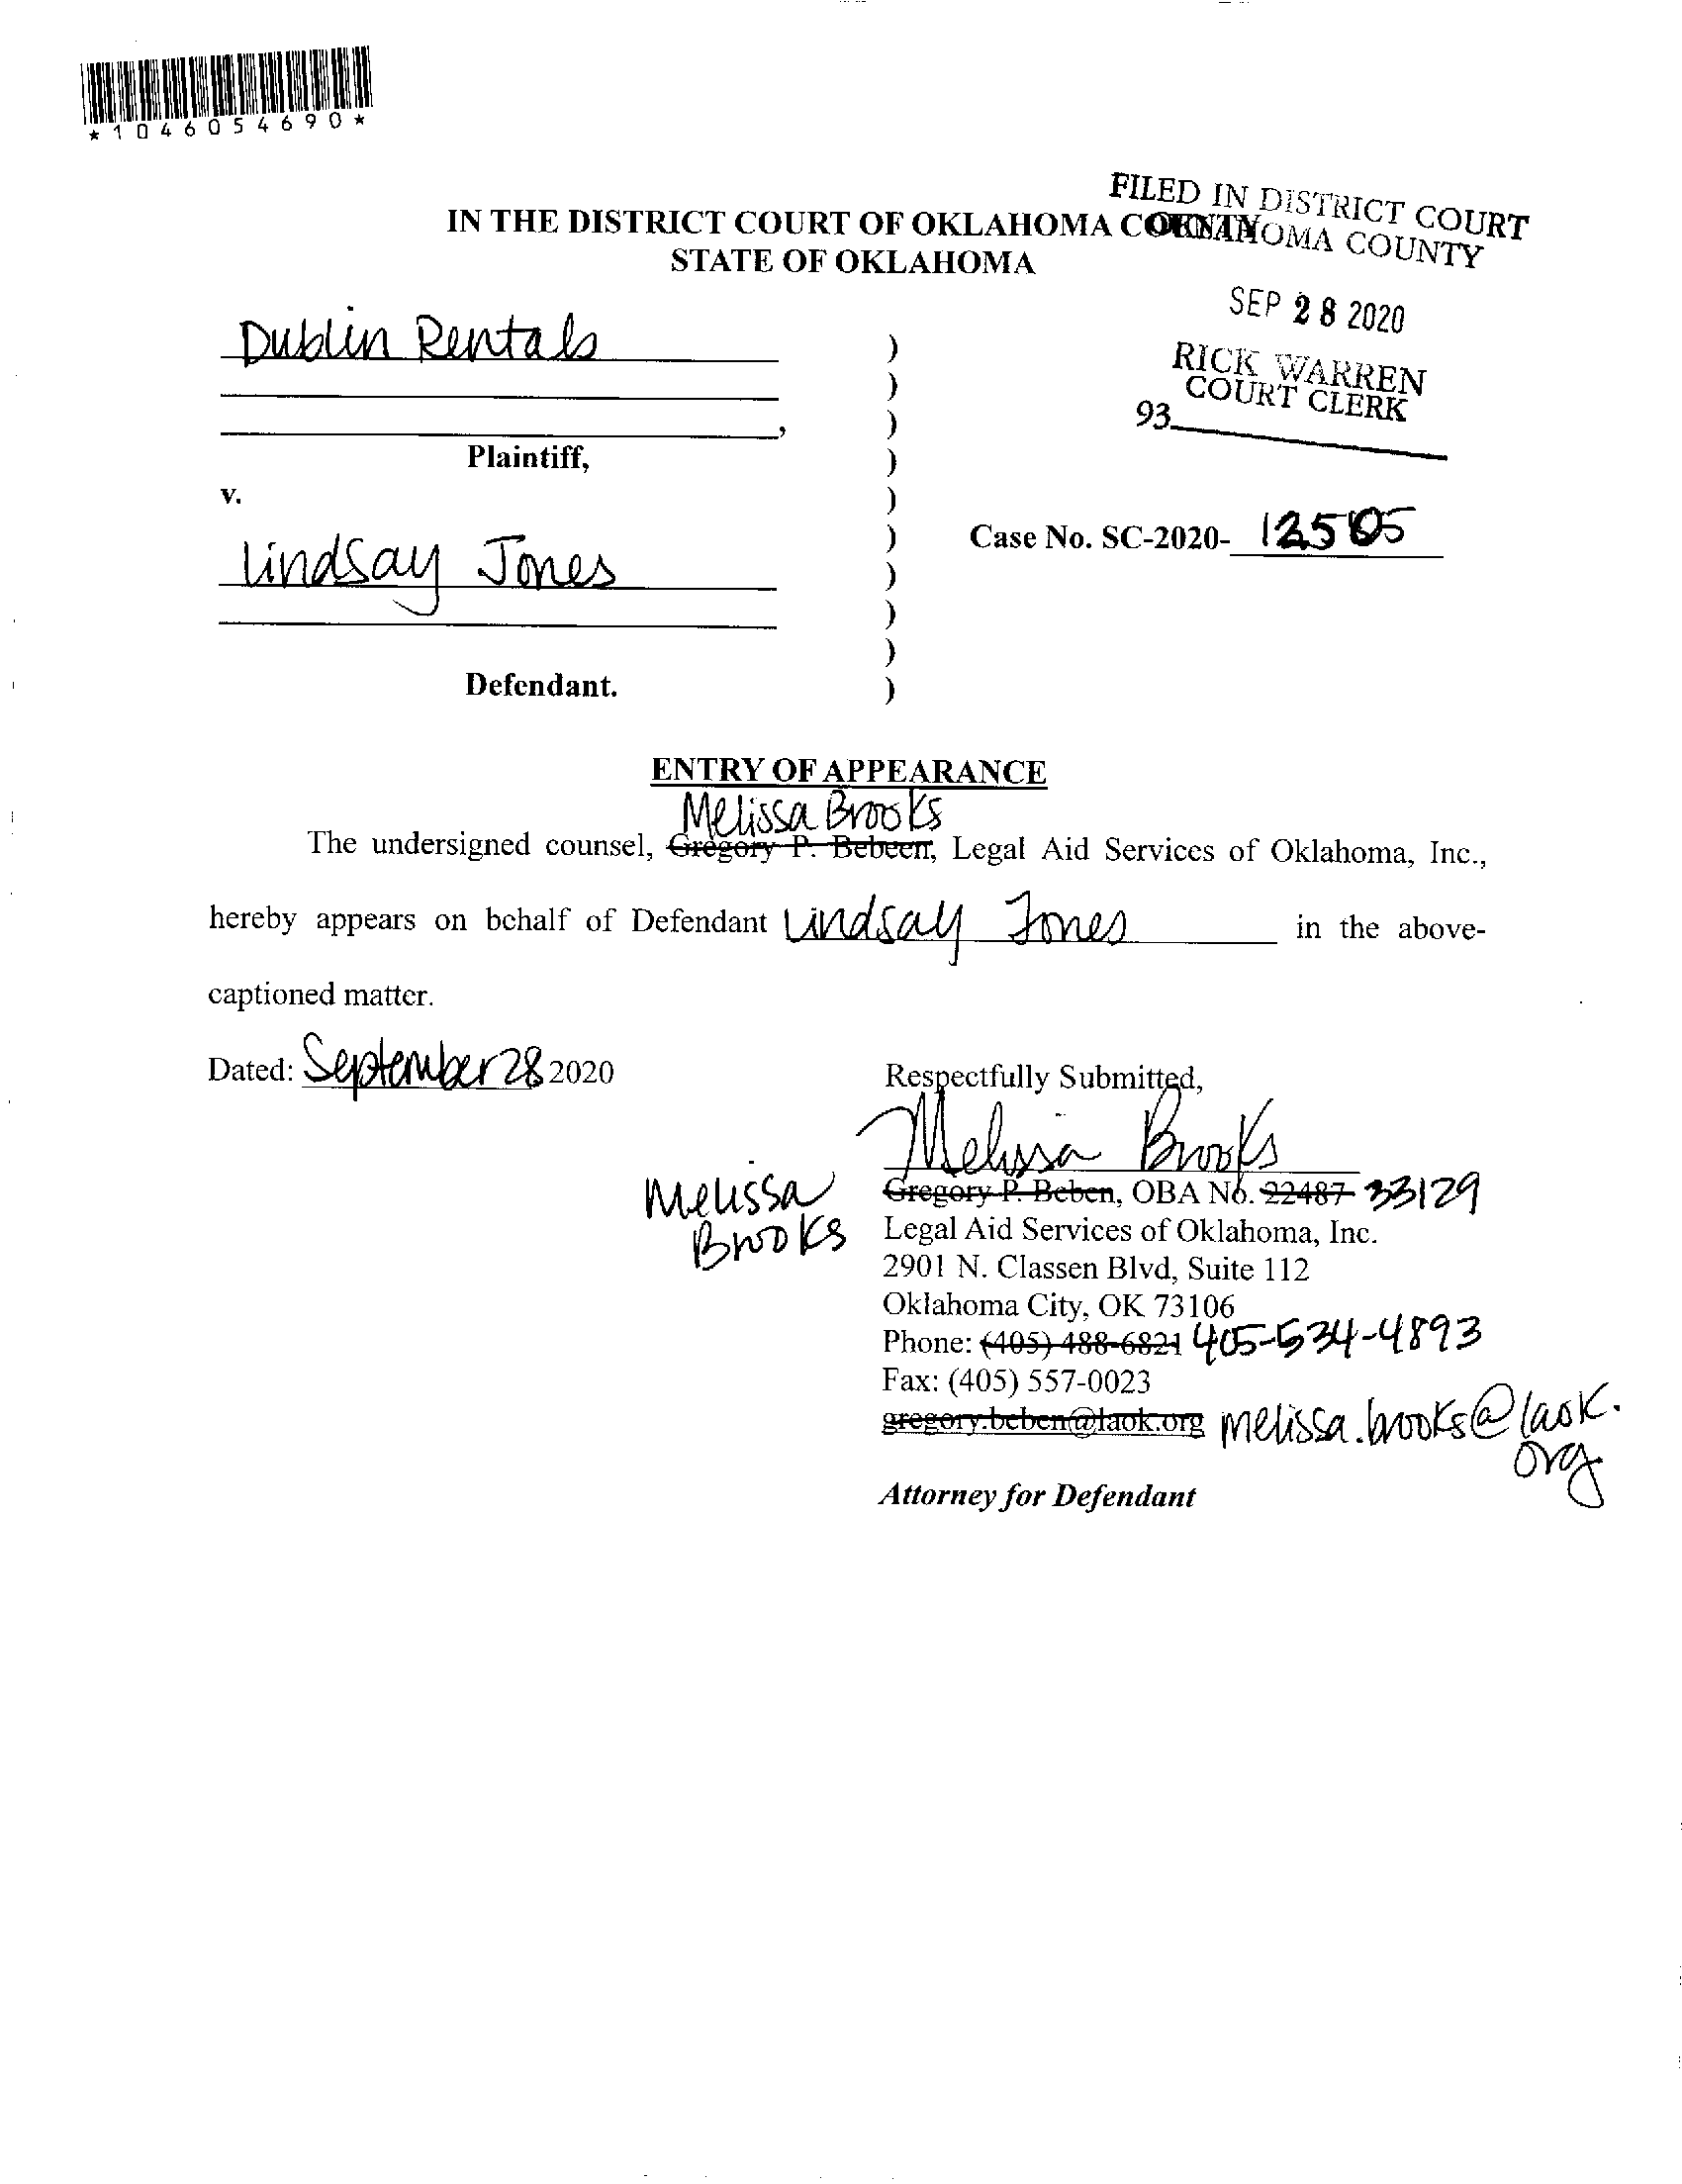 *1046054690*
FILED IN DISTRICT COURT
OKLAHOMA COUNTY
IN THE DISTRICT COURT OF OKLAHOMA COUNTY
STATE OF OKLAHOMA
SEP 28 2020
RICK WARREN
COURT CLERK
93
Dublin Rentals )
)
, )
Plaintiff, )
v. )
) Case No. SC-2020- 12505
Lindsay Jones )
)
)
Defendant. )
ENTRY OF APPEARANCE
Melissa Brooks
The undersigned counsel, Gregory P. Bebeen, Legal Aid Services of Oklahoma, Inc.,
hereby appears on behalf of Defendant Lindsay Jones in the above-
captioned matter.
Dated: September 28 2020
Respectfully Submitted,
Melissa Brooks
Melissa
Brooks
Gregory P. Beben, OBA No. 22487 33129
Legal Aid Services of Oklahoma, Inc.
2901 N. Classen Blvd, Suite 112
Oklahoma City, OK 73106
Phone: (405) 488-6821 405-534-4893
Fax: (405) 557-0023
gregory.beben@laok.org melissa.brooks@laok.
org
Attorney for Defendant